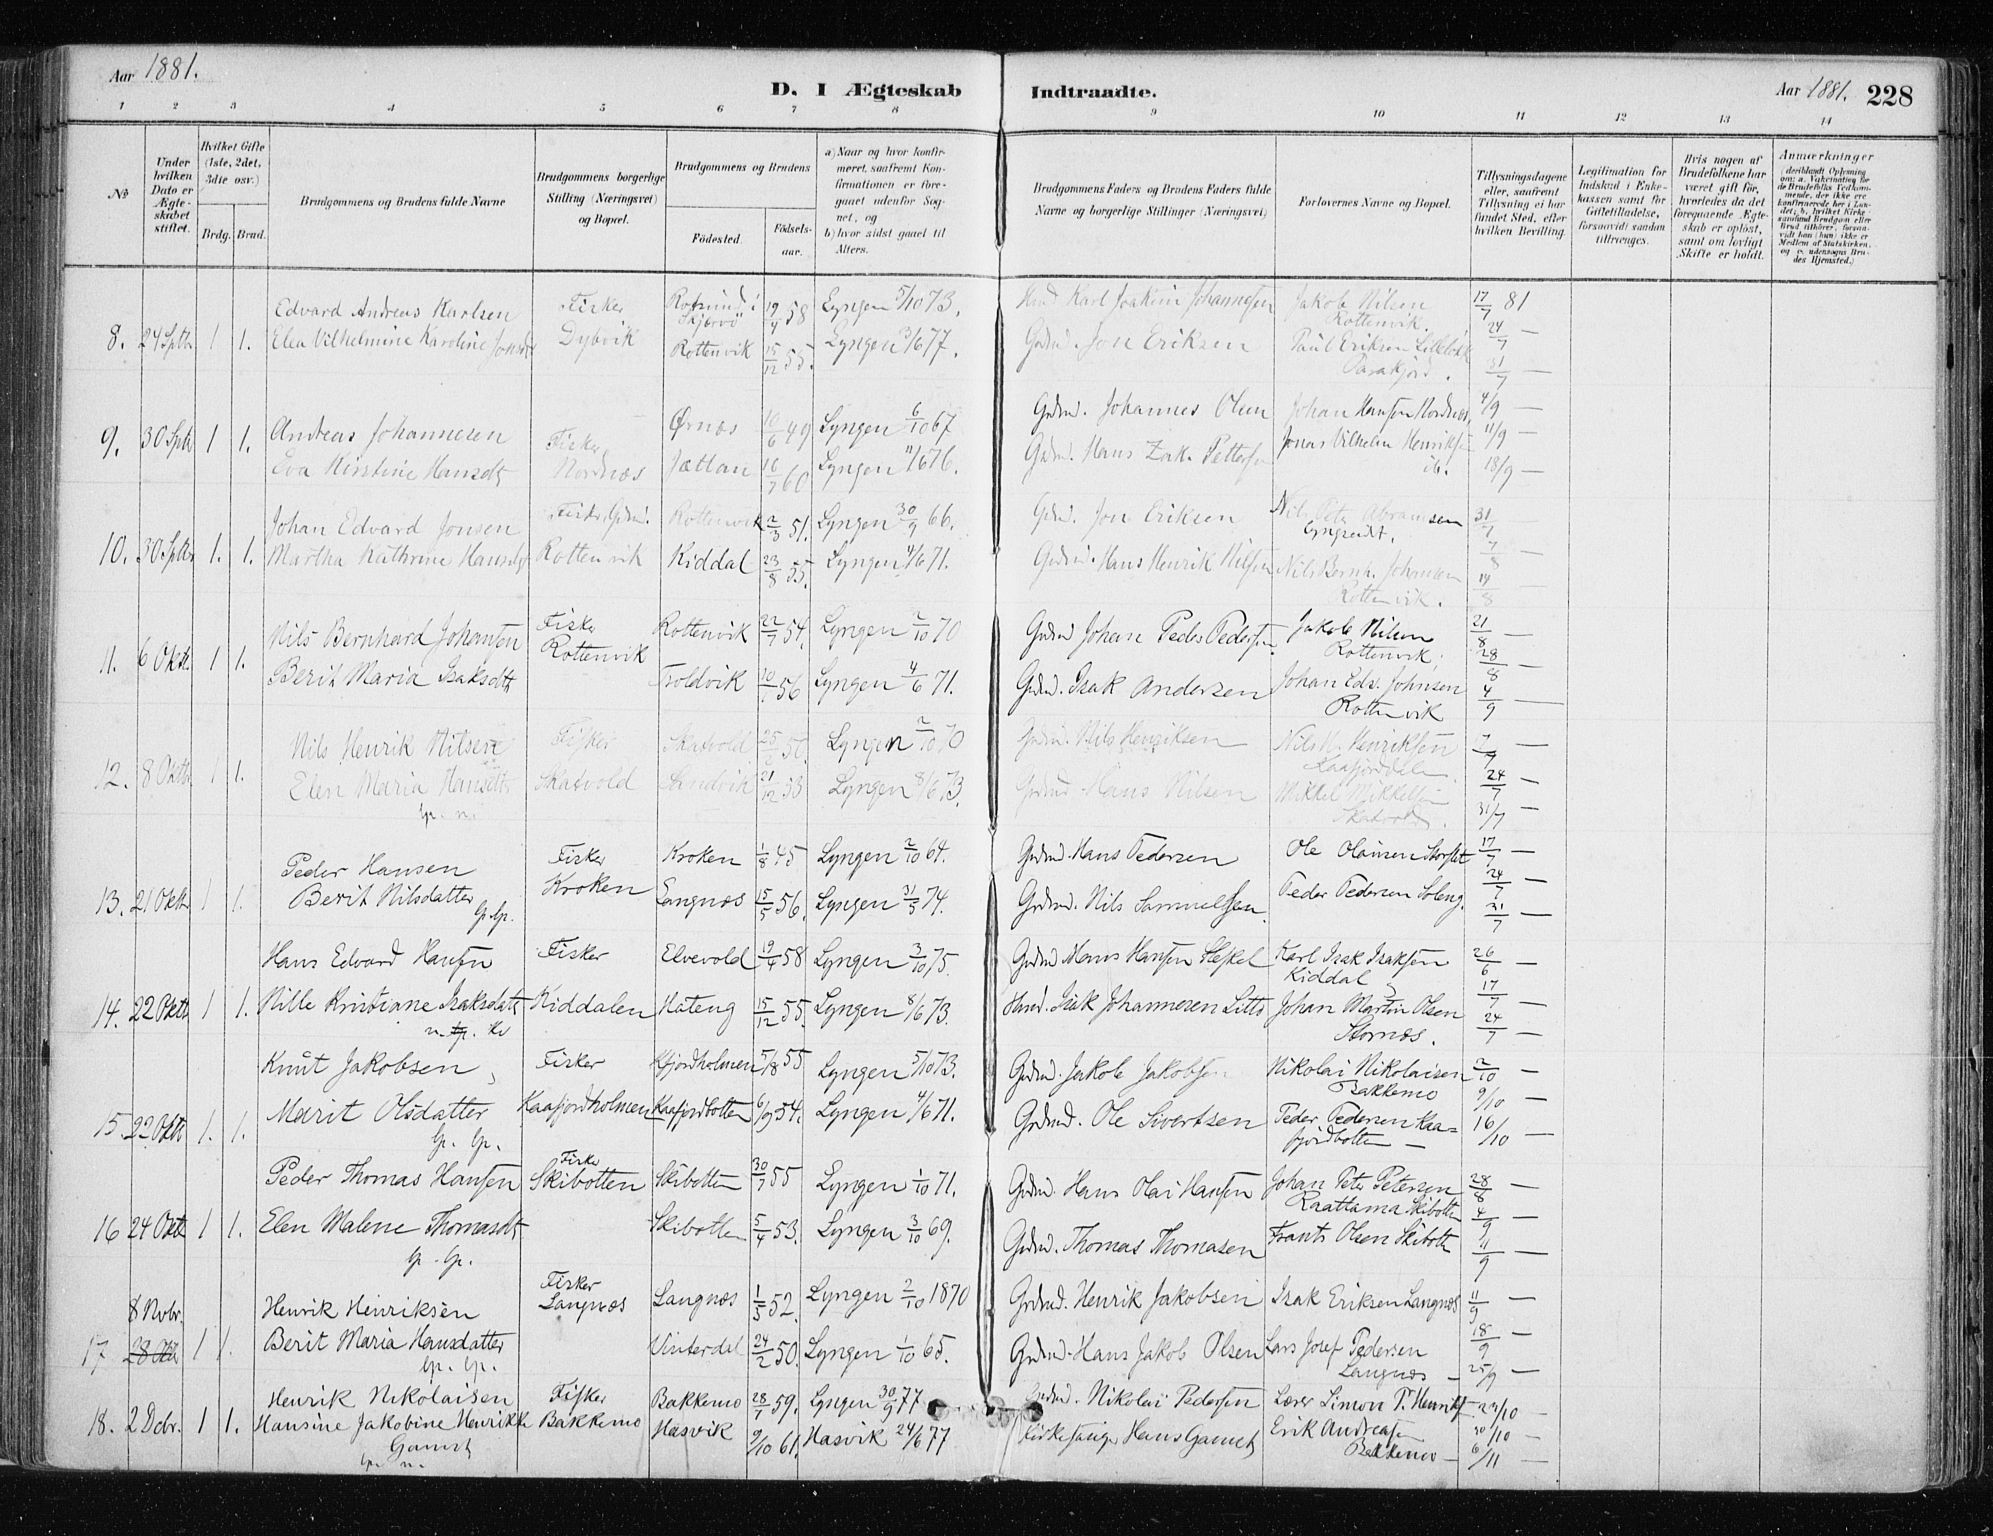 Aar 1881.
D. I Ægteskab Indtraadte.
Aar 1881. 228
1 2 3 4 5 6 7 8 9 10 11 12 13 14
№
Under hvilken Dato er Ægteskabet stiftet.
Hvilket Gifte (1ste, 2det, 3die osv.)
Brdg. Brud.
Brudgommens og Brudens fulde Navne
Brudgommens borgerlige Stilling (Næringsvei) og Bopæl.
Brudgommens og Brudens
Födested.
Födselsaar.
a) Naar og hvor konfirmeret, saafremt Konfirmationen er foregaaet udenfor Sognet, og
b) hvor sidst gaaet til Alters.
Brudgommens Faders og Brudens Faders fulde Navne og borgerlige Stillinger (Næringsvei)
Forlovernes Navne og Bopæl.
Tillysningsdagene eller, saafremt Tillysning ei har fundet Sted, efter hvilken Bevilling.
Legitimation for Indskud i Enkekassen samt for Giftetilladelse, forsaavidt saadan tiltrænges.
Hvis nogen af Brudefolkene har været gift för, hvorledes da det foregaaende Ægteskab er oplöst, samt om lovligt Skifte er holdt.
Anmærkninger
8. 24 Sptb 1 1.
Edvard Andreas Karlsen Fisker 19/4 58 Lyngen 5/10 73. Karl Joakim Johannesen Jakob Nilsen Rottenvik. 17/7 81
Elea Vilhelmine Karoline Dybvik Rottenvik 15/12 55. Lyngen 3/6 77. Grdmd. Jon Eriksen Paul Eriksen 24/7 — 31/7 —
9. 30 Sptb 1 1.
Andreas Johannesen Fisker Ørnæs 49 Lyngen 6/10 67 Grdmd. Johannes Olsen Johan Hansen Nordnæs 4/9 —
Eva Kirstine Hansdt Nordnæs Jættan 60 Lyngen 11/6 76. Grdmd. Hans Zak. Petters Jonas Vilhelm Henriksen ib. 11/9 — 18/9 —
10. 30 Sptb 1. 1.
Johan Edvard Jonsen Fisker, Grdmd. Rottenvik 2/3 51. Lyngen 30/9 66. Grdmd. Jon Eriksen Nils Peter Abramsen 31/7
Martha Kathrine Hansdt Rottenvik Kiddal 23/8 55. Lyngen 4/6 71. Grdmd. Hans Henrik Nilsen Nils Bernh. Johansen Rottenvik. 7/8 — 14/8
11. 6 Oktb. 1 1.
Nils Bernhard Johansen Fisker Rottenvik Rottenvik 22/7 54. Lyngen 2/10 70 Grdmd Johan Peder Pedersen. Jakob Nilsen Rottenvik; 21/8 —
Berit Maria Isaksdtt Troldvik 56 Lyngen 4/6 71. Grdmd. Isak Andersen Johan Edv. Johnsen Rottenvik 28/8 — 4/9 —
12. 8 Oktb 1 1.
Nils Henrik Nilsen Fisker Skatvold Lyngen 2/10 70 Grdmd. Nils Henriksen Nils N. Henriksen Kaafjorddalen 17/7 —
Elen Maria Hansdtt Skatvold Sandvik 21/12 53 Lyngen 8/6 73. Grdmd. Hans Nilsen Mikkel Mikkelsen Skatvold. 24/7 — 31/7 —
13. 21 Oktb 1 1.
Peder Hansen Fisker Kroken 1/8 45 Lyngen 2/10 64. Grdmd. Hans Pedersen Ole Olaisen Storslet 17/7 —
Berit Nilsdatter Kroken Langnæs 15/5 56. Lyngen 31/5 74. Grdmd. Nils Samuelsen. Peder Pedersen Soleng. 24/7 — 31/7 —
14. 22 Oktb 1 1.
Hans Edvard Hansen Fisker Elvevold 19/4 58 Lyngen 3/10 75. Grdmd Hans Hansen Karl Isak Isaksen Kiddal 26/6 —
Nille Kristiane Isaksdatt Kiddalen Hateng 15/12 55. Lyngen 8/6 73. Isak Johannesen Johan Martin Olsen Stornæs. 17/7 — 24/7 —
15. 22 Oktb 1. 1.
Knut Jakobsen Fisker Kfjordholmen 5/8 55 Lyngen 5/10 73. Grdmd. Jakob Jakobsen Nikolai Nikolaisen Bakkemo 2/10 — 9/10 —
Marit Olsdatter Kaafjordholmen Kaafjordbotten 6/9 54. Lyngen 4/6 71. Grdmd. Ole Sivertsen Peder Pedersen Kaafjordbotten — 16/10 —
16 24 Oktb 1 1.
Peder Thomas Hansen Fisker Skibotten Skibotten 30/7 55 Lyngen 1/10 71. Grdmd. Hans Olai Hansen Johan Peter Petersen Raattama Skibotten 28/8 — 4/9 —
Elen Malene Thomasdt Skibotten 5/4 53. Lyngen 3/10 69. Grdmd. Thomas Thomasen Frants Olsen Skibotten 11/9 —
17 8 Nvbr. 28 Okt 1 1.
Henrik Henriksen Fisker Langnæs Langnæs 1/5 52. Lyngen 2/10 1870 Grdmd. Henrik Jakobsen Isak Eriksen Langnæs 11/9 —
Berit Maria Hansdatter Vinterdal 24/2 50. Lyngen 1/10 65. Grdmd. Hans Jakob Olsen Lars Josef Pedersen Langnæs — 18/9 — 25/9 —
18. 2 Dcbr. 1 1.
Henrik Nikolaisen Fisker Bakkemo 28/7 59. Lyngen 30/9 77 Grdmd. Nikolai Pedersen Lærer Simon P. Henriks 23/10 —
Hansine Jakobine Henrikke Gamst Bakkemo Hasvik 9/10 61. Hasvik 24/6 77 Kirkesanger Hans Gamst Erik Andreasen Bakkemo — 30/10 — 6/11 —